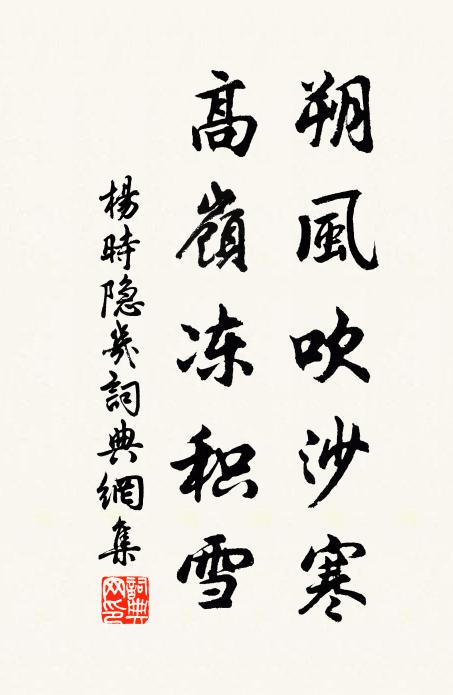 朔風吹沙寒
高嶺冻积雪
楊時隐几詞典網集
詞典网印